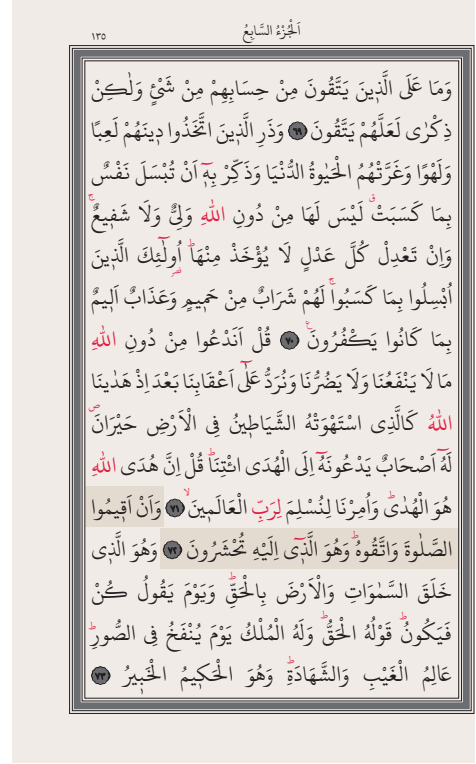 اَلْجُزْءُ السَّابِعُ
١٣٥
وَمَا عَلَى الَّذٖينَ يَتَّقُونَ مِنْ حِسَابِهِمْ مِنْ شَيْءٍ وَلٰكِنْ
ذِكْرٰى لَعَلَّهُمْ يَتَّقُونَ ﴿٦٩﴾ وَذَرِ الَّذٖينَ اتَّخَذُوا دٖينَهُمْ لَعِبًا
وَلَهْوًا وَغَرَّتْهُمُ الْحَيٰوةُ الدُّنْيَا وَذَكِّرْ بِهٖٓ اَنْ تُبْسَلَ نَفْسٌ
بِمَا كَسَبَتْۗ لَيْسَ لَهَا مِنْ دُونِ اللّٰهِ وَلِيٌّ وَلَا شَفٖيعٌۚ
وَاِنْ تَعْدِلْ كُلَّ عَدْلٍ لَا يُؤْخَذْ مِنْهَاۜ اُو۬لٰٓئِكَ الَّذٖينَ
اُبْسِلُوا بِمَا كَسَبُواۚ لَهُمْ شَرَابٌ مِنْ حَمٖيمٍ وَعَذَابٌ اَلٖيمٌ
بِمَا كَانُوا يَكْفُرُونَ۟ ﴿٧٠﴾ قُلْ اَنَدْعُوا مِنْ دُونِ اللّٰهِ
مَا لَا يَنْفَعُنَا وَلَا يَضُرُّنَا وَنُرَدُّ عَلٰٓى اَعْقَابِنَا بَعْدَ اِذْ هَدٰينَا
اللّٰهُ كَالَّذِى اسْتَهْوَتْهُ الشَّيَاطٖينُ فِى الْاَرْضِ حَيْرَانَۖ
لَهُٓ اَصْحَابٌ يَدْعُونَهُٓ اِلَى الْهُدَى ائْتِنَاۜ قُلْ اِنَّ هُدَى اللّٰهِ
هُوَ الْهُدٰىۜ وَاُمِرْنَا لِنُسْلِمَ لِرَبِّ الْعَالَمٖينَۙ ﴿٧١﴾ وَاَنْ اَقٖيمُوا
الصَّلٰوةَ وَاتَّقُوهُۜ وَهُوَ الَّذٖٓى اِلَيْهِ تُحْشَرُونَ ﴿٧٢﴾ وَهُوَ الَّذٖى
خَلَقَ السَّمٰوَاتِ وَالْاَرْضَ بِالْحَقِّۜ وَيَوْمَ يَقُولُ كُنْ
فَيَكُونُۜ قَوْلُهُ الْحَقُّۜ وَلَهُ الْمُلْكُ يَوْمَ يُنْفَخُ فِى الصُّورِۜ
عَالِمُ الْغَيْبِ وَالشَّهَادَةِۜ وَهُوَ الْحَكٖيمُ الْخَبٖيرُ ﴿٧٣﴾